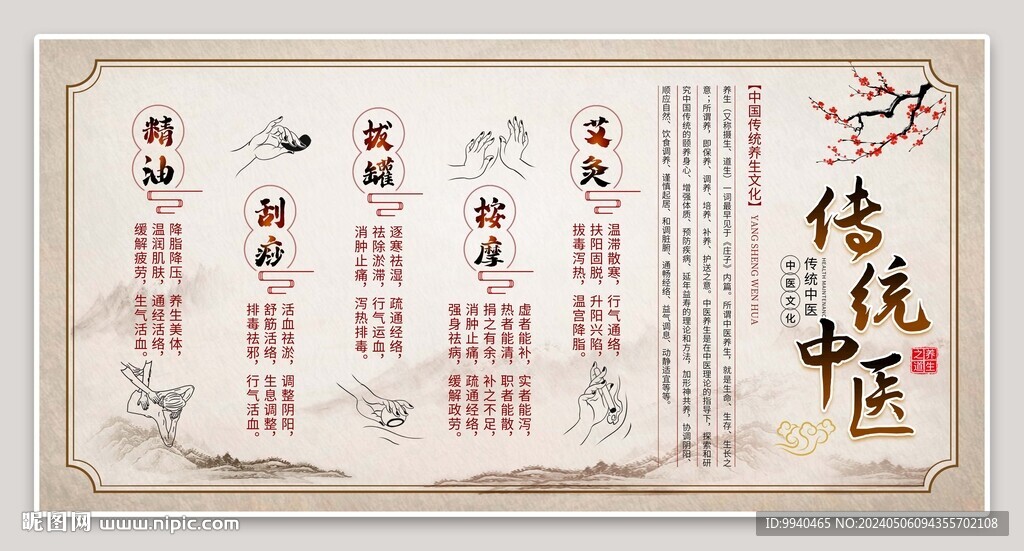 传统中医
养生之道
传统中医
HEALTH MAINTENANCE
中医文化
【中国传统养生文化】 YANG SHENG WEN HUA
养生（又称摄生、道生）一词最早见于《庄子》内篇。所谓中医养生，就是生命、生存、生长之
意；所谓养，即保养、调养、培养、补养、护送之意。中医养生是在中医理论的指导下，探索和研
究中国传统的颐养身心、增强体质、预防疾病、延年益寿的理论和方法，加形神共养，协调阴阳、
顺应自然、饮食调养、谨慎起居、和调脏腑、通畅经络、益气调息、动静适宜等等。
艾灸
温滞散寒，行气通络，
扶阳固脱，升阳兴陷，
拔毒泻热，温宫降脂。
按摩
虚者能补，实者能泻，
热者能清，职者能散，
捐之有余，补之不足，
消肿止痛，疏通经络，
强身祛病，缓解政劳。
拔罐
逐寒祛湿，疏通经络，
祛除淤滞，行气运血，
消肿止痛，泻热排毒。
刮痧
活血祛淤，调整阴阳，
舒筋活络，生息调整，
排毒祛邪，行气活血。
精油
降脂降压，养生美体，
温润肌肤，通经活络，
缓解疲劳，生气活血。
昵图网 www.nipic.com
ID:9940465 NO:20240506094355702108